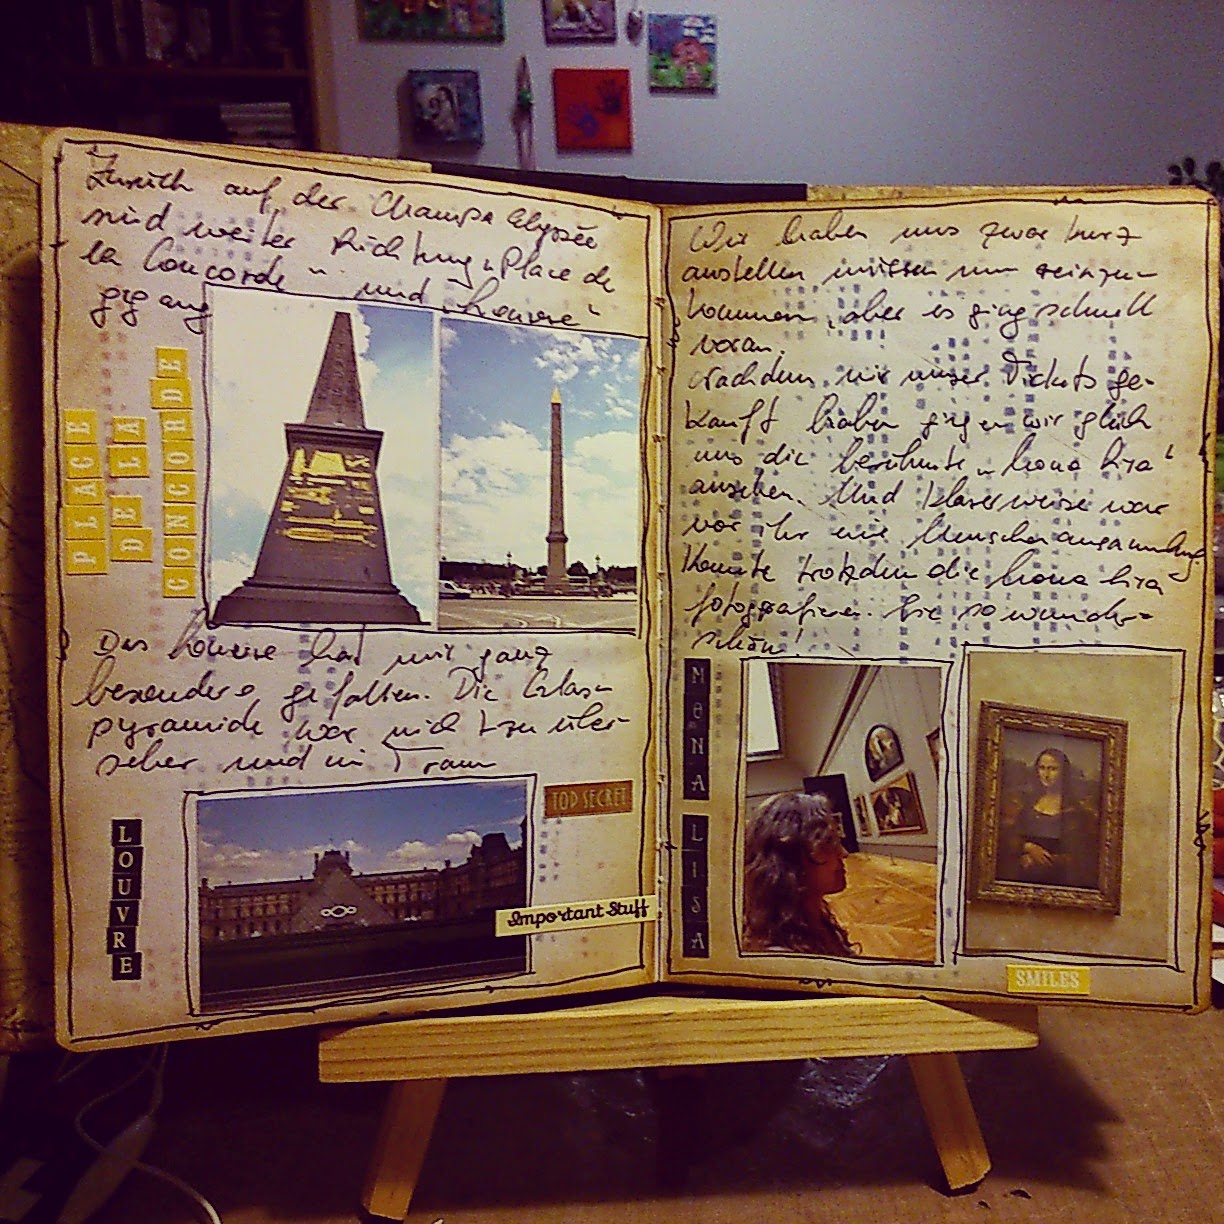 Zurück auf der Champs Elysée
sind weiter Richtung „Place de
la Concorde" und „Louvre"
gegang
PLACE
DE LA
CONCORDE
Das Louvre hat mir ganz
besonders gefallen. Die Glas-
pyramide war nicht zu über-
sehen und ein Traum
LOUVRE
TOP SECRET
Important Stuff
Wir haben uns zwar kurz
anstellen müssen um reinzu-
kommen, aber es ging schnell
voran.
Nachdem wir unser Tickets ge-
kauft haben gingen wir gleich
uns die berühmte „Mona Lisa"
ansehen. Und klarerweise war
vor ihr eine Menschenansammlung.
Konnte trotzdem die Mona Lisa
fotografieren. Sie so wunder-
schön!
MONA
LISA
SMILES